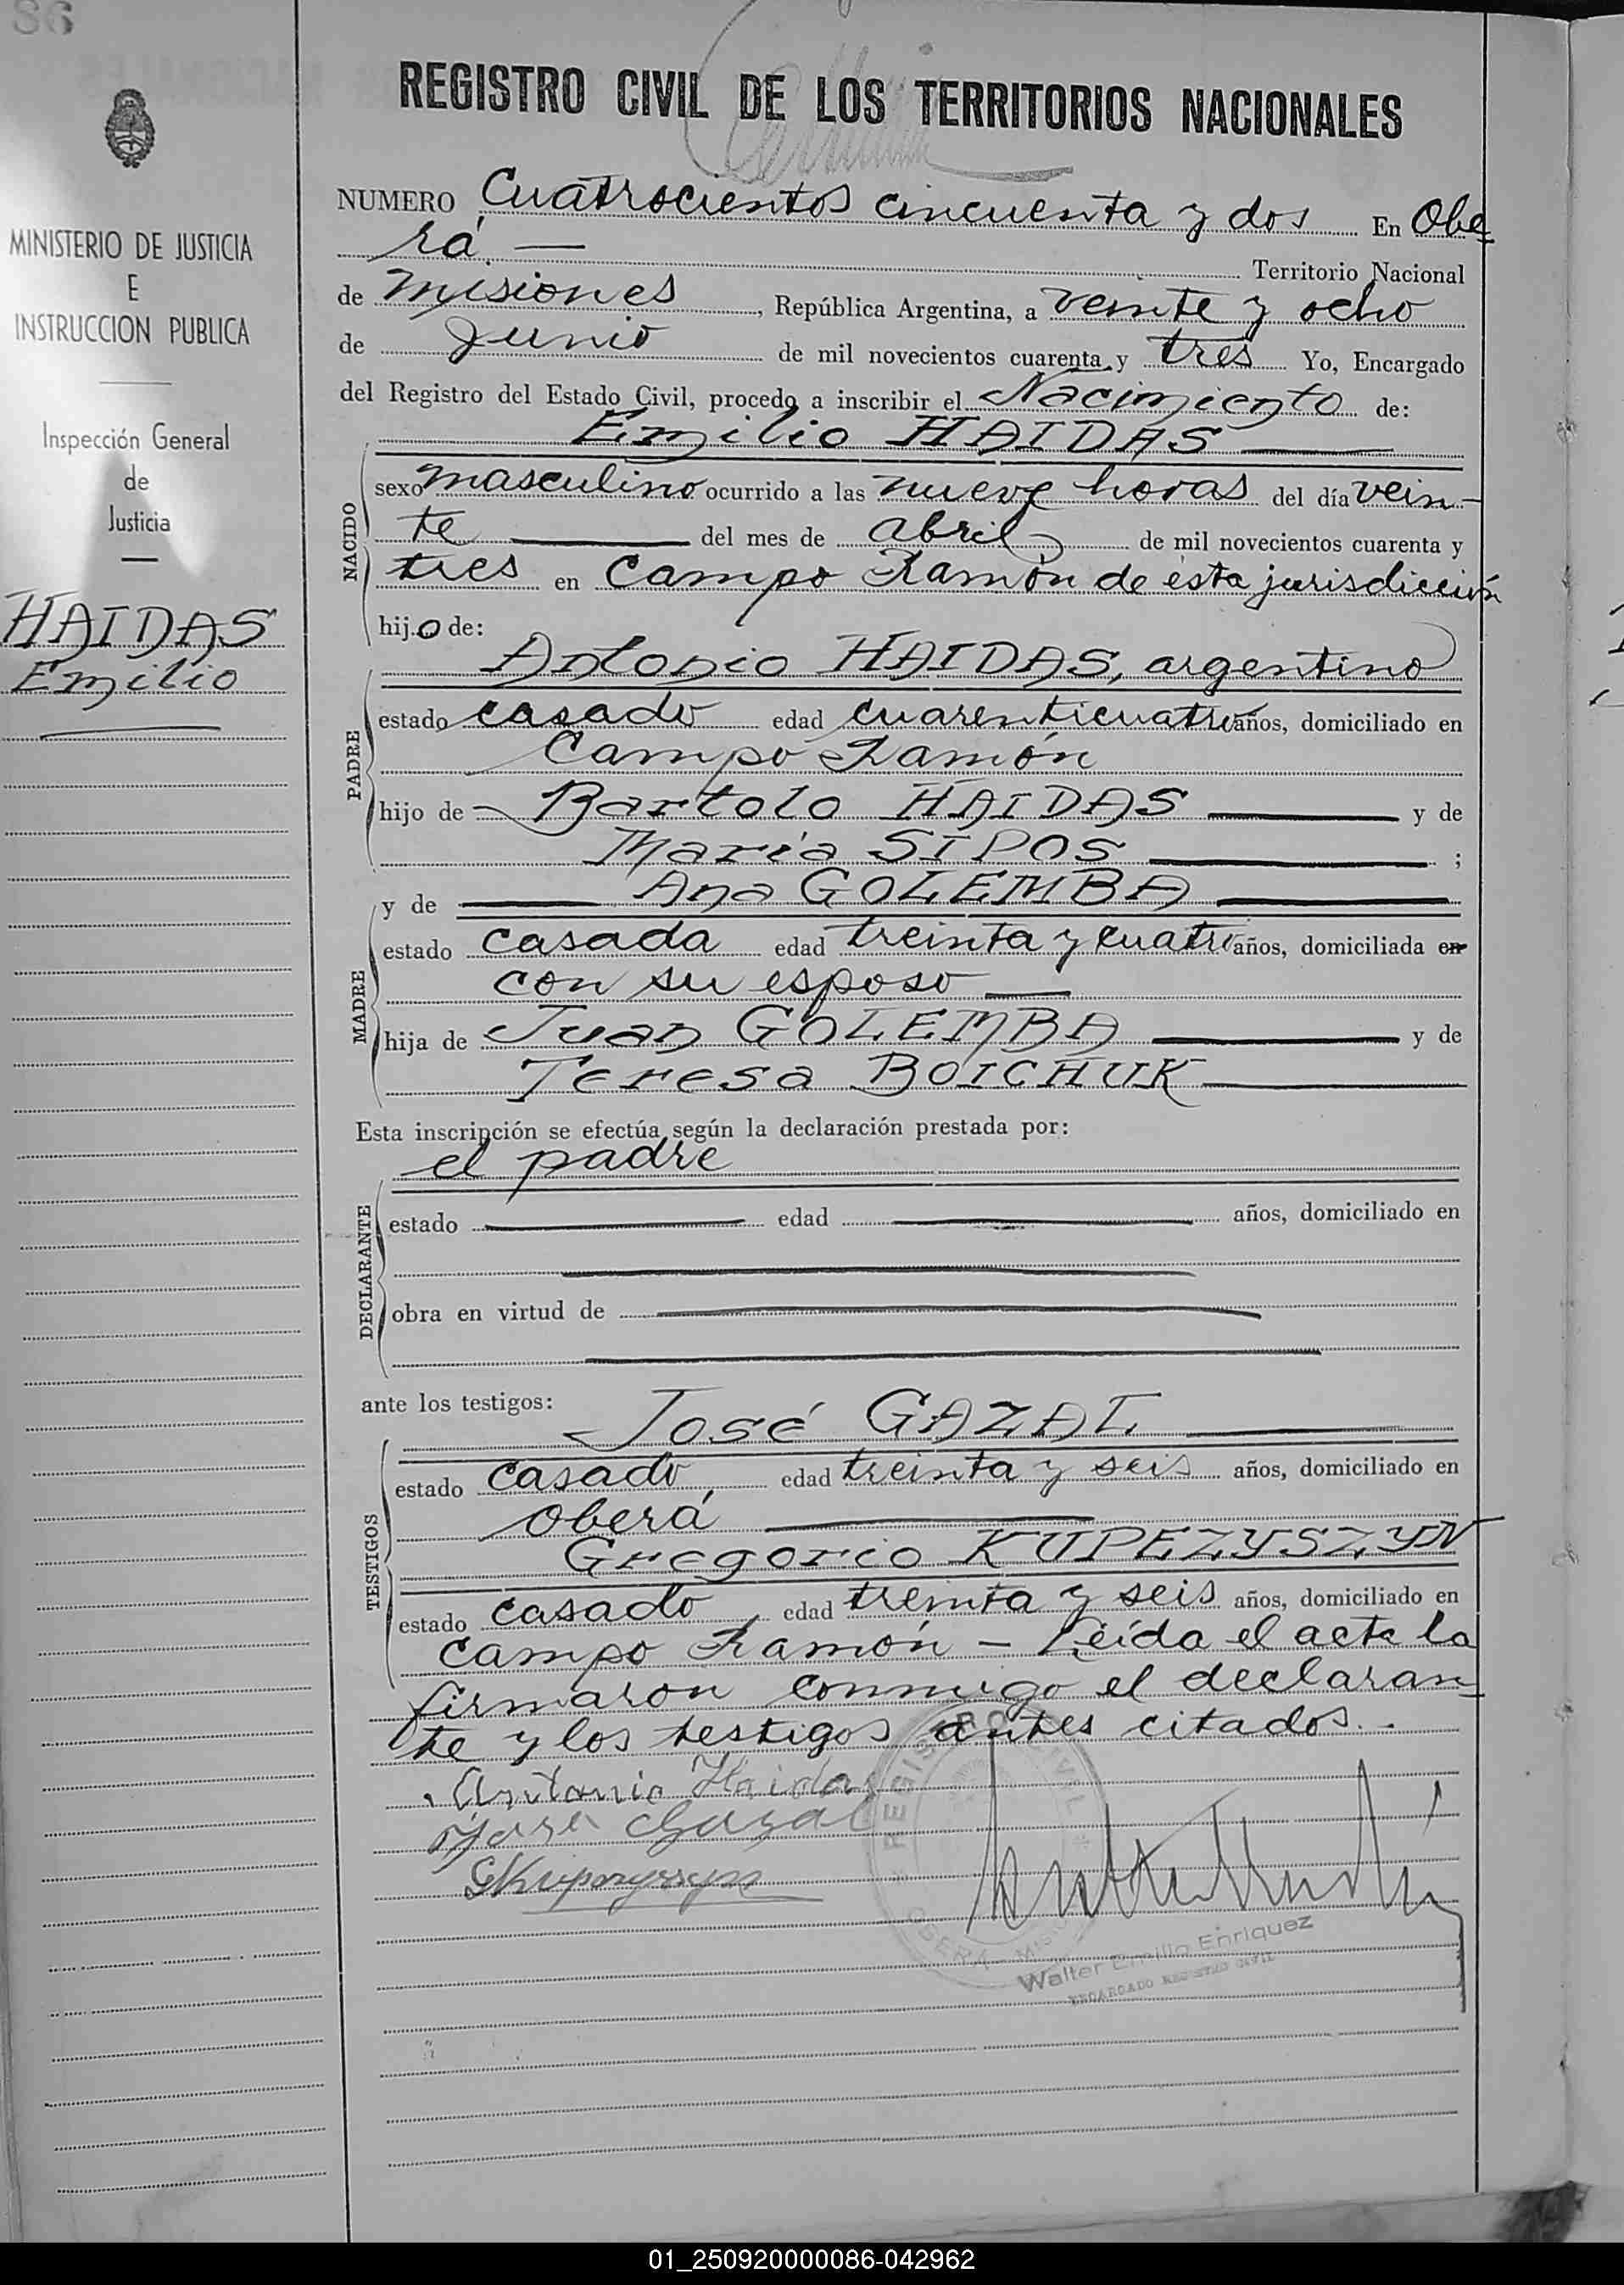 86
REGISTRO CIVIL DE LOS TERRITORIOS NACIONALES
MINISTERIO DE JUSTICIA
E
INSTRUCCION PUBLICA
Inspección General
de
Justicia
HAIDAS
Emilio
NUMERO Cuatrocientos cincuenta y dos En Obe
rá.— Territorio Nacional
de Misiones, República Argentina, a veinte y ocho
de Junio de mil novecientos cuarenta y tres Yo, Encargado
del Registro del Estado Civil, procedo a inscribir el Nacimiento de:
Emilio HAIDAS
NACIDO
sexo masculino ocurrido a las nueve horas del día vein-
te del mes de abril de mil novecientos cuarenta y
tres en Campo Ramón de ésta jurisdicción
hijo de:
Antonio HAIDAS, argentino
PADRE
estado casado edad cuarenticuatro años, domiciliado en
Campo Ramón
hijo de Bartolo HAIDAS y de
María SIPOS ;
y de Ana GOLEMBA
MADRE
estado casada edad treinta y cuatro años, domiciliada en
con su esposo
hija de Juan GOLEMBA y de
Teresa BOICHUK
Esta inscripción se efectúa según la declaración prestada por:
el padre
DECLARANTE
estado edad años, domiciliado en
obra en virtud de
ante los testigos:
José GAZAL
TESTIGOS
estado casado edad treinta y seis años, domiciliado en
Oberá
Gregorio KUPEZYSZYN
estado casado edad treinta y seis años, domiciliado en
Campo Ramón — Leída el acta la
firmaron conmigo el declaran-
te y los testigos antes citados.-
Antonio Haidas
José Gazal
REGISTRO CIVIL
OBERA
Walter Emilio Enriquez
ENCARGADO REGISTRO CIVIL
01_250920000086-042962